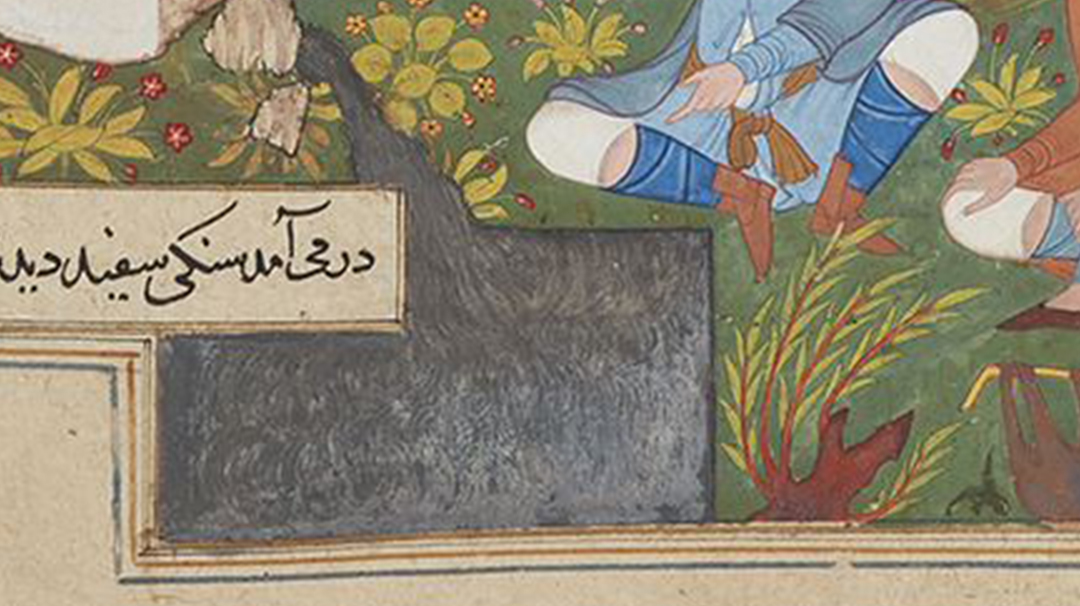 درمی آمد سنکی سفید دید